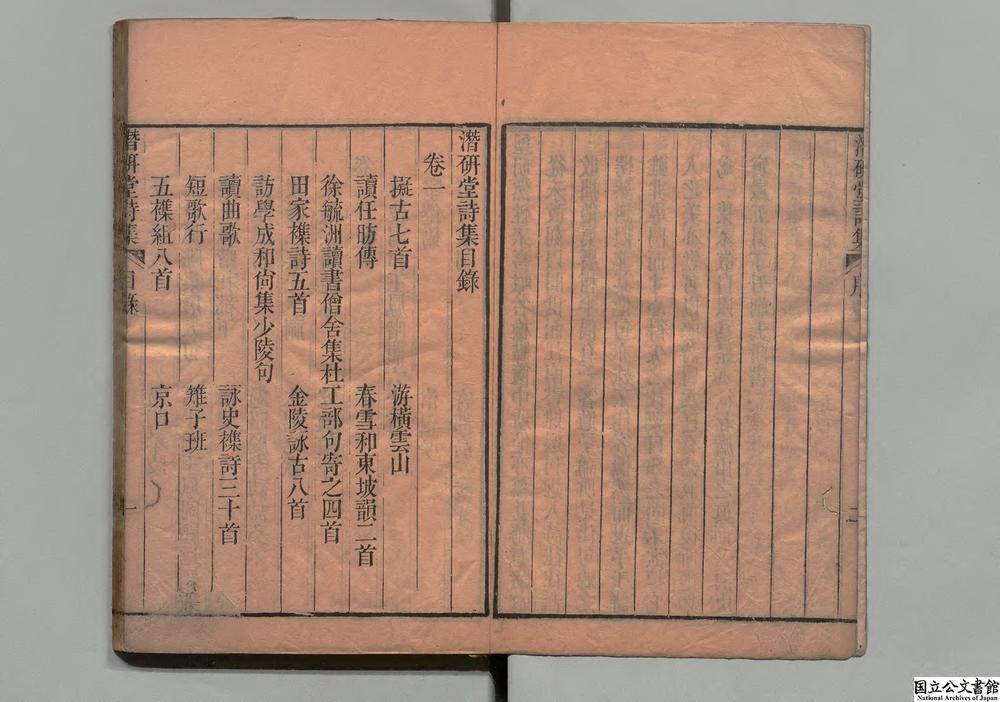 潛研堂詩集 序 二
潛研堂詩集目錄
卷一
擬古七首 游橫雲山
讀任昉傳 春雪和東坡韻二首
徐毓洲讀書僧舍集杜工部句寄之四首
田家襍詩五首 金陵詠古八首
訪學成和尙集少陵句
讀曲歌 詠史襍詩三十首
短歌行 雉子班
五襍組八首 京口
潛研堂詩集 目錄 一
国立公文書館
National Archives of Japan